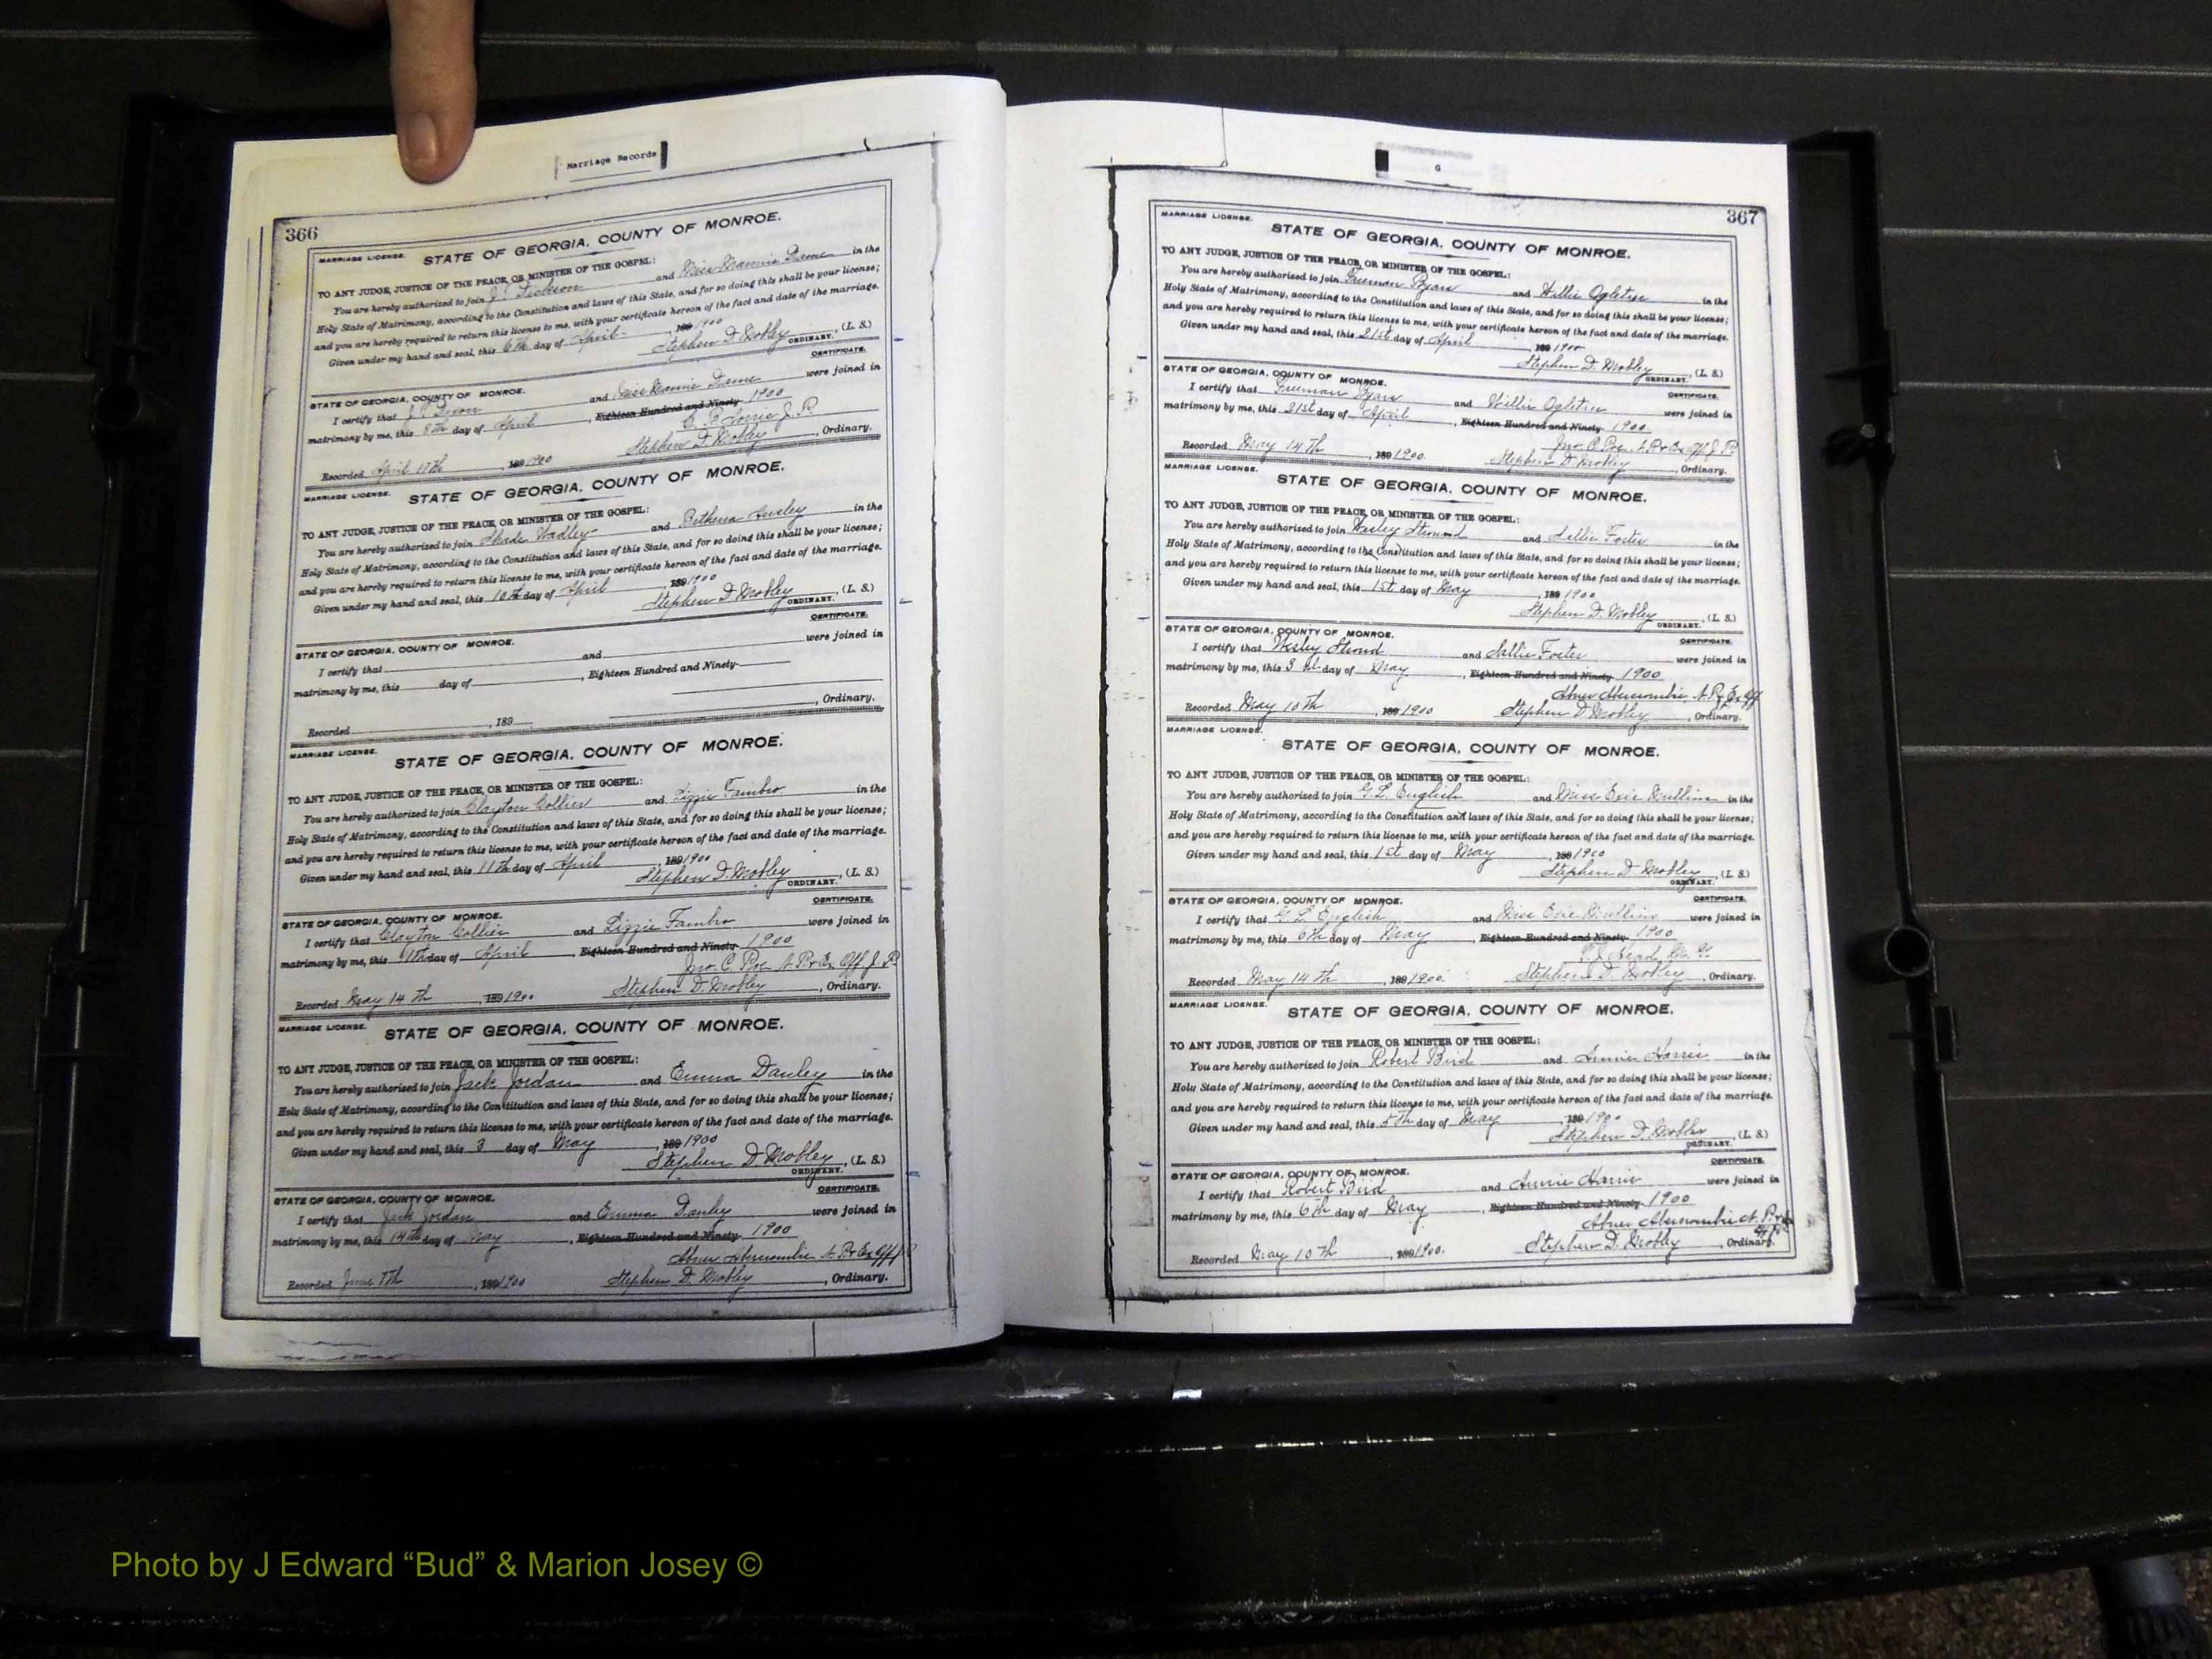 Marriage Records
366
MARRIAGE LICENSE. STATE OF GEORGIA, COUNTY OF MONROE.
TO ANY JUDGE, JUSTICE OF THE PEACE, OR MINISTER OF THE GOSPEL:
You are hereby authorized to join J. T. Dickson and Miss Mannie in the
Holy State of Matrimony, according to the Constitution and laws of this State, and for so doing this shall be your license;
and you are hereby required to return this license to me, with your certificate hereon of the fact and date of the marriage.
Given under my hand and seal, this 6th day of April 189 1900
Stephen D. Mobley ORDINARY. (L. S.)
CERTIFICATE.
STATE OF GEORGIA, COUNTY OF MONROE.
I certify that and Miss Mannie were joined in
matrimony by me, this 8th day of April, Eighteen Hundred and Ninety- 1900
J. P.
Recorded April, 189 1900 Stephen D. Mobley, Ordinary.
MARRIAGE LICENSE. STATE OF GEORGIA, COUNTY OF MONROE.
TO ANY JUDGE, JUSTICE OF THE PEACE, OR MINISTER OF THE GOSPEL:
You are hereby authorized to join Shade Wadley and Bethena in the
Holy State of Matrimony, according to the Constitution and laws of this State, and for so doing this shall be your license;
and you are hereby required to return this license to me, with your certificate hereon of the fact and date of the marriage.
Given under my hand and seal, this 10th day of April, 189 1900
Stephen D. Mobley ORDINARY. (L. S.)
CERTIFICATE.
STATE OF GEORGIA, COUNTY OF MONROE.
I certify that and were joined in
matrimony by me, this day of, Eighteen Hundred and Ninety-
Recorded, 189 , Ordinary.
MARRIAGE LICENSE. STATE OF GEORGIA, COUNTY OF MONROE.
TO ANY JUDGE, JUSTICE OF THE PEACE, OR MINISTER OF THE GOSPEL:
You are hereby authorized to join Clayton Collier and Lizzie Fambro in the
Holy State of Matrimony, according to the Constitution and laws of this State, and for so doing this shall be your license;
and you are hereby required to return this license to me, with your certificate hereon of the fact and date of the marriage.
Given under my hand and seal, this 11th day of April, 189 1900
Stephen D. Mobley ORDINARY. (L. S.)
CERTIFICATE.
STATE OF GEORGIA, COUNTY OF MONROE.
I certify that Clayton Collier and Lizzie Fambro were joined in
matrimony by me, this 11th day of April, Eighteen Hundred and Ninety- 1900
Jno. C. Poe N. P. & Ex Off J. P.
Recorded May 14th, 189 1900 Stephen D. Mobley, Ordinary.
MARRIAGE LICENSE. STATE OF GEORGIA, COUNTY OF MONROE.
TO ANY JUDGE, JUSTICE OF THE PEACE, OR MINISTER OF THE GOSPEL:
You are hereby authorized to join Jack Jordan and Emma Danley in the
Holy State of Matrimony, according to the Constitution and laws of this State, and for so doing this shall be your license;
and you are hereby required to return this license to me, with your certificate hereon of the fact and date of the marriage.
Given under my hand and seal, this 3 day of May, 189 1900
Stephen D Mobley ORDINARY. (L. S.)
CERTIFICATE.
STATE OF GEORGIA, COUNTY OF MONROE.
I certify that Jack Jordan and Emma Danley were joined in
matrimony by me, this 14th day of May, Eighteen Hundred and Ninety- 1900
Abner Abercrombie N. P. & Ex Off
Recorded June, 189 1900 Stephen D. Mobley, Ordinary.
G
367
MARRIAGE LICENSE.
STATE OF GEORGIA, COUNTY OF MONROE.
TO ANY JUDGE, JUSTICE OF THE PEACE, OR MINISTER OF THE GOSPEL:
You are hereby authorized to join Freeman and Willie Ogletree in the
Holy State of Matrimony, according to the Constitution and laws of this State, and for so doing this shall be your license;
and you are hereby required to return this license to me, with your certificate hereon of the fact and date of the marriage.
Given under my hand and seal, this 21st day of April, 189 1900
Stephen D. Mobley ORDINARY. (L. S.)
CERTIFICATE.
STATE OF GEORGIA, COUNTY OF MONROE.
I certify that Freeman and Willie Ogletree were joined in
matrimony by me, this 21st day of April, Eighteen Hundred and Ninety- 1900
Jno. C. Poe N. P. & Ex Off J. P.
Recorded May 14th, 189 1900. Stephen D. Mobley, Ordinary.
MARRIAGE LICENSE.
STATE OF GEORGIA, COUNTY OF MONROE.
TO ANY JUDGE, JUSTICE OF THE PEACE, OR MINISTER OF THE GOSPEL:
You are hereby authorized to join Wesley Stroud and Sallie Foster in the
Holy State of Matrimony, according to the Constitution and laws of this State, and for so doing this shall be your license;
and you are hereby required to return this license to me, with your certificate hereon of the fact and date of the marriage.
Given under my hand and seal, this 1st day of May, 189 1900
Stephen D. Mobley ORDINARY. (L. S.)
CERTIFICATE.
STATE OF GEORGIA, COUNTY OF MONROE.
I certify that Wesley Stroud and Sallie Foster were joined in
matrimony by me, this 3 day of May, Eighteen Hundred and Ninety- 1900
Abner Abercrombie N. P. Ex Off
Recorded May 10th, 189 1900 Stephen D Mobley, Ordinary.
MARRIAGE LICENSE.
STATE OF GEORGIA, COUNTY OF MONROE.
TO ANY JUDGE, JUSTICE OF THE PEACE, OR MINISTER OF THE GOSPEL:
You are hereby authorized to join G. L. English and Miss Evie Mullins in the
Holy State of Matrimony, according to the Constitution and laws of this State, and for so doing this shall be your license;
and you are hereby required to return this license to me, with your certificate hereon of the fact and date of the marriage.
Given under my hand and seal, this 1st day of May, 189 1900
Stephen D. Mobley ORDINARY. (L. S.)
CERTIFICATE.
STATE OF GEORGIA, COUNTY OF MONROE.
I certify that G. L. English and Miss Evie Mullins were joined in
matrimony by me, this 6th day of May, Eighteen Hundred and Ninety- 1900
Head M. G.
Recorded May 14th, 189 1900. Stephen D. Mobley, Ordinary.
MARRIAGE LICENSE.
STATE OF GEORGIA, COUNTY OF MONROE.
TO ANY JUDGE, JUSTICE OF THE PEACE, OR MINISTER OF THE GOSPEL:
You are hereby authorized to join Robert Bird and Annie Harris in the
Holy State of Matrimony, according to the Constitution and laws of this State, and for so doing this shall be your license;
and you are hereby required to return this license to me, with your certificate hereon of the fact and date of the marriage.
Given under my hand and seal, this 5th day of May, 189 1900
Stephen D. Mobley ORDINARY. (L. S.)
CERTIFICATE.
STATE OF GEORGIA, COUNTY OF MONROE.
I certify that Robert Bird and Annie Harris were joined in
matrimony by me, this 6th day of May, Eighteen Hundred and Ninety- 1900
Abner Abercrombie N. P. &
Recorded May 10th, 189 1900. Stephen D. Mobley, Ordinary.
Photo by J Edward “Bud” & Marion Josey ©